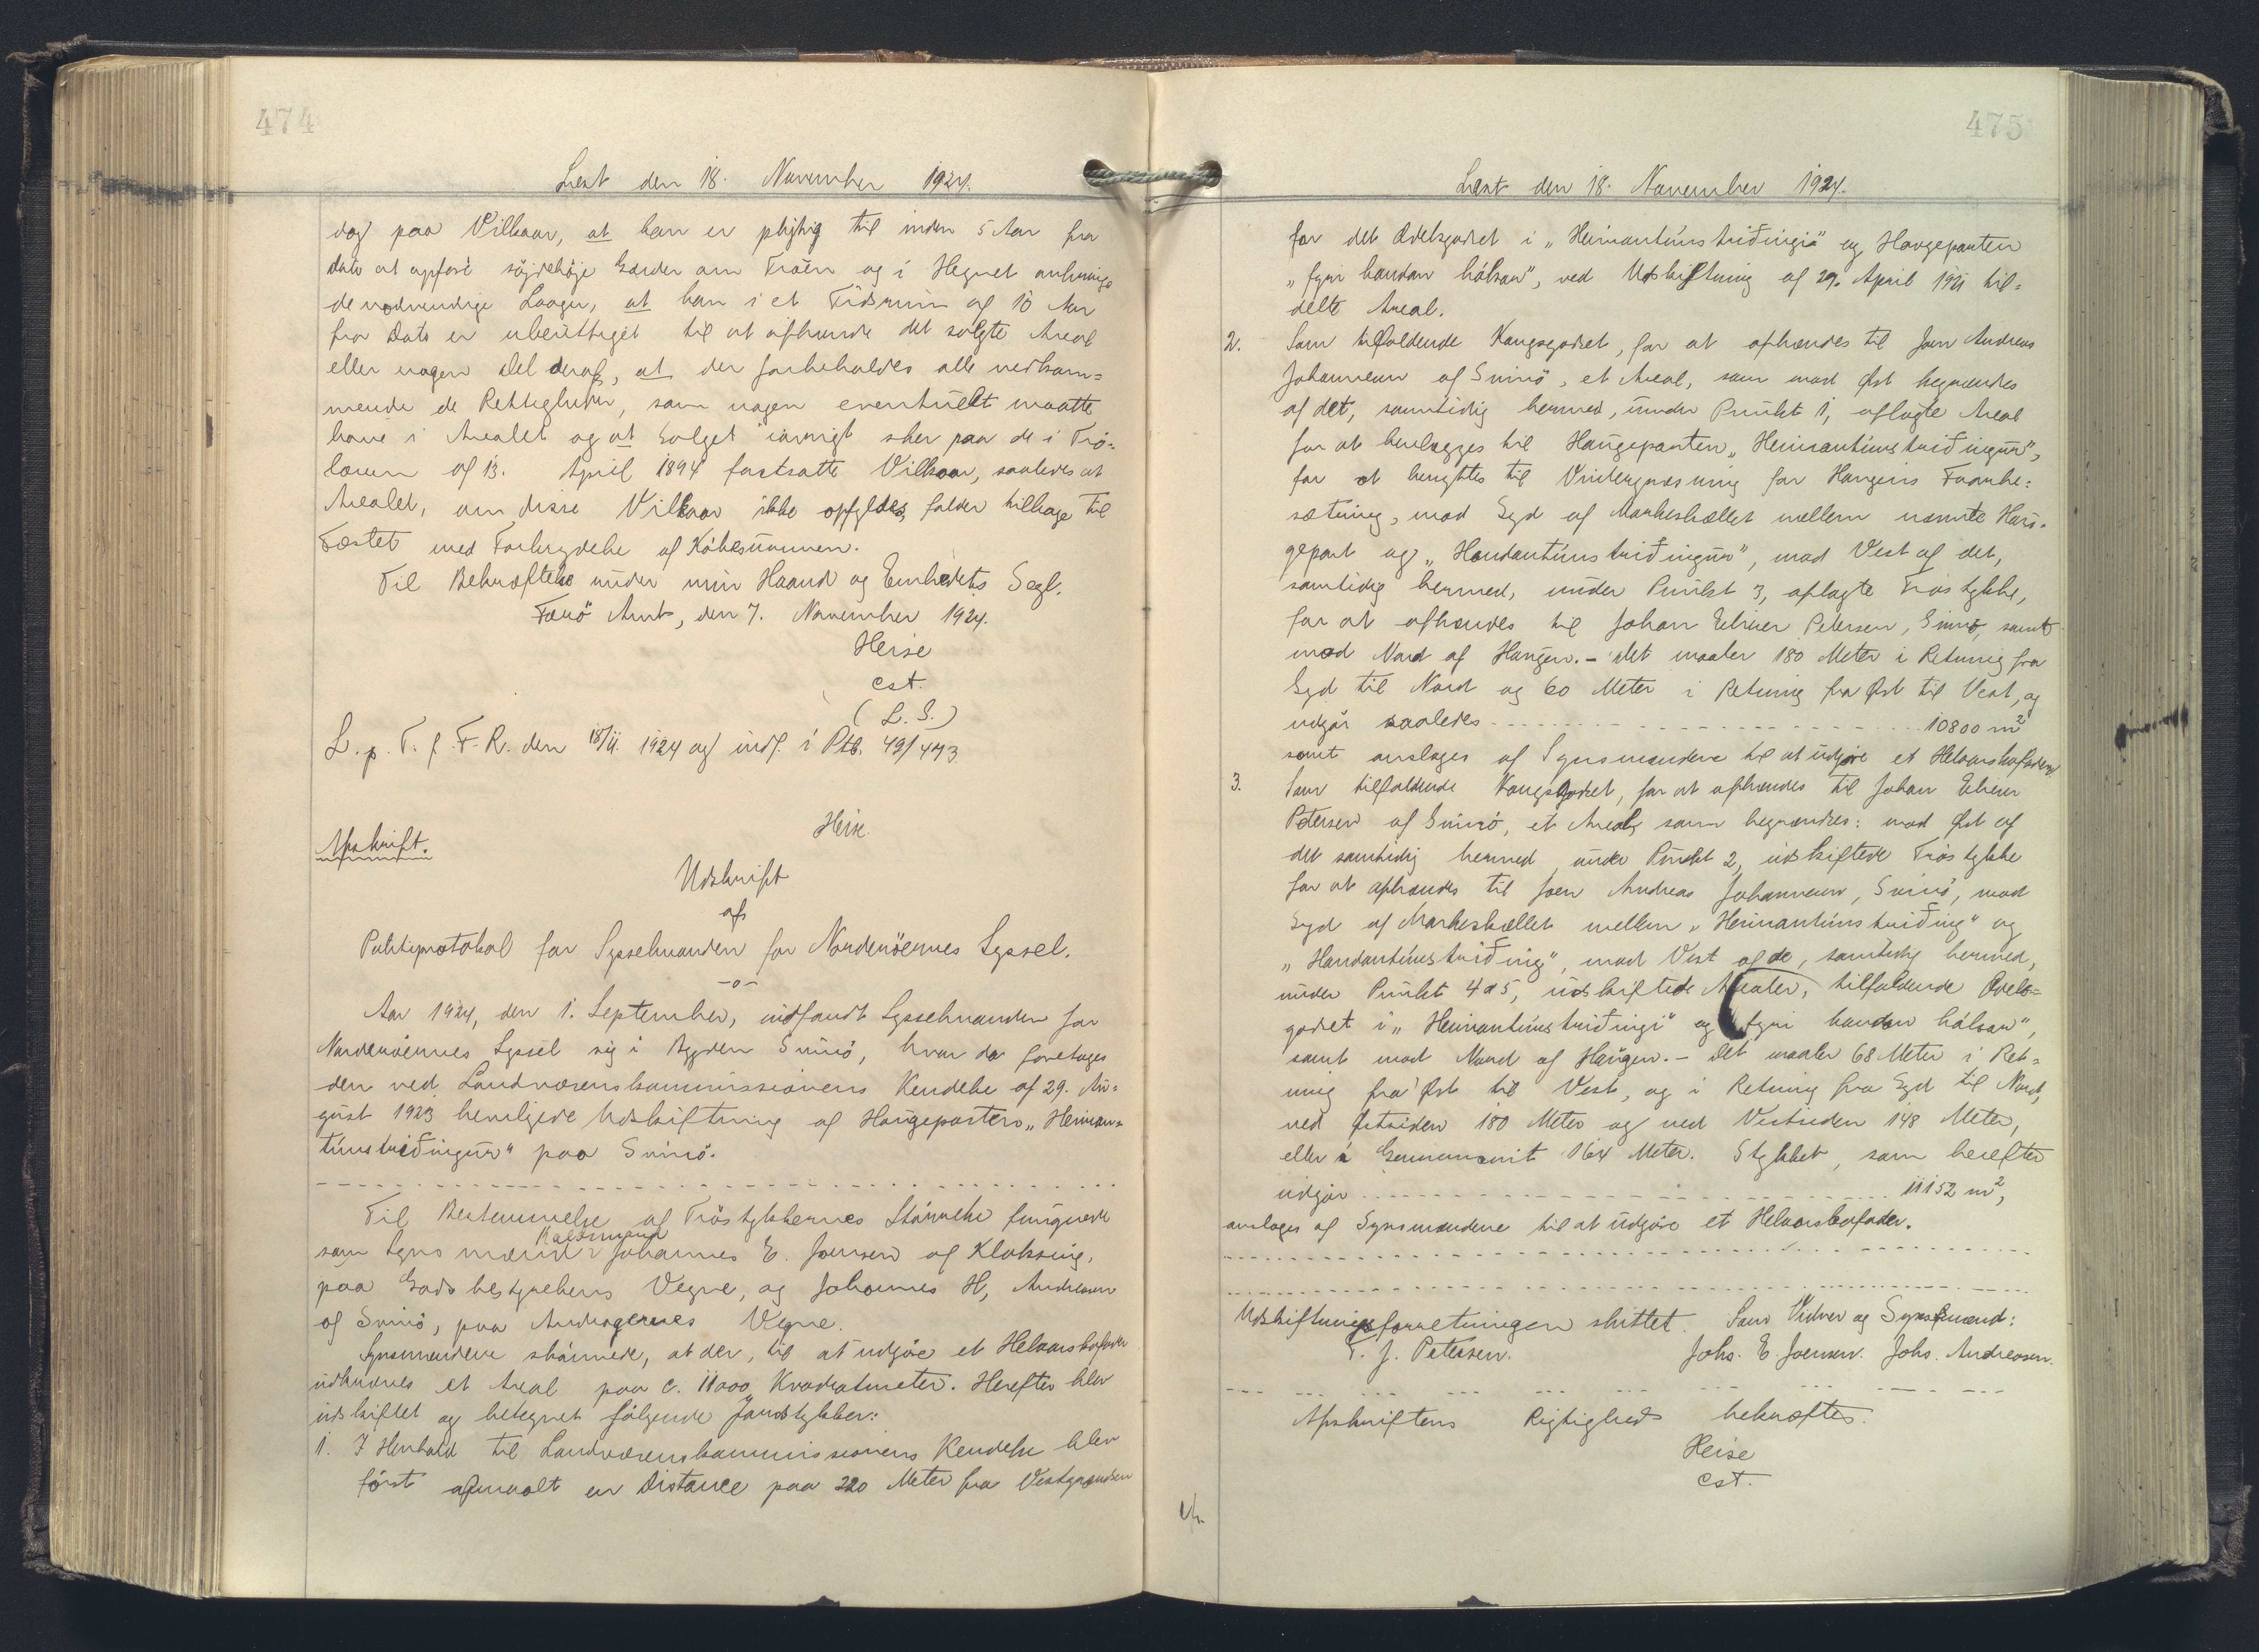 474
Læst den 18. November 1924.
dog paa Vilkaar, at han er pligtig til inden 5 Aar fra
dato at opføre sojdehöje Gærder om Tröen og i Hegnet anbringe
de nødvendige Laager, at han i et Tidsrum af 10 Aar
fra Dato er uberettiget til at afhænde det solgte Areal
eller nogen Del deraf, at der forbeholdes alle vedkom=
mende de Rettigheder, som nogen eventuelt maatte
have i Arealet og at Salget iøvrigt sker paa de i Trö=
loven af 13. April 1894 fastsatte Vilkaar, saaledes at
Arealet, om disse Vilkaar ikke opfyldes, falder tilbage til
Fæstet med Forbrydelse af Köbesummen.
Til Bekræftelse under min Haand og Embedets Segl.
Færö Amt, den 7. November 1924.
Heise
cst.
(L. S.)
L. p. T. f. F. R. den 18/11. 1924 og indf. i Ptb. 49/473.
Heise.
Afskrift.
Udskrift
af
Politiprotokol for Sysselmanden for Norderöernes Syssel.
-o-
Aar 1924, den 1. September, indfandt Sysselmanden for
Norderöernes Syssel sig i Bygden Svinö, hvor da foretoges
den ved Landvæsenskommissionens Kendelse af 29. Au=
gust 1923 bevilgede Udskiftning af Haugeparten „Heiman=
túnstriðingur" paa Svinö.
Til Bestemmelse af Tröstykkernes Störrelse fungerede
som Synsmænd: Kaldsmand Johannes E. Joensen af Klaksvig,
paa Godsbestyrelsens Vegne, og Johannes H, Andreasen
af Svinö, paa Andragernes Vegne.
Synsmændene skönnede, at der, til at udgöre et Helaarskofoder
udkræves et Areal paa c. 11000 Kvadratmeter. Herefter blev
udskiftet og betegnet følgende Jordstykker:
1. I Henhold til Landvæsenskommissionens Kendelse blev
först afmaalt en Distance paa 220 Meter fra Vestgrændsen
475
Læst den 18. November 1924.
for det Odelsgodset i „Heimantúnstriðingi" og Haugeparten
„fyri handan hálsan", ved Udskiftning af 29. April 1921 til=
delte Areal.
2. Som tilfaldende Kongsgodset, for at afhændes til Joen Andreas
Johannesen af Svinö, et Areal, som mod Øst begrændses
af det, samtidig hermed, under Punkt 1, aflagte Areal
for at henlægges til Haugeparten „Heimantúnstriðingur",
for at benyttes til Vintergræsning for Haugens Faarebe=
sætning, mod Syd af Markeskellet mellem nævnte Hau=
gepart og „Handantúnstriðingur", mod Vest af det,
samtidig hermed, under Punkt 3, aflagte Tröstykke,
for at afhændes til Johan Elieser Petersen, Svinö, samt
mod Nord af Haugen. - Det maaler 180 Meter i Retning fra
Syd til Nord og 60 Meter i Retning fra Øst til Vest, og
udgör saaledes 10800 m²
samt anslages af Synsmændene til at udgöre et Helaarskofoder
3. Som tilfaldende Kongsgodset, for at afhændes til Johan Elieser
Petersen af Svinö, et Areal, som begrændses: mod Øst af
det samtidig hermed, under Punkt 2, udskiftede Tröstykke
for at afhændes til Joen Andreas Johannesen, Svinö, mod
Syd af Markeskellet mellem „Heimantúnstriðing" og
„Handantúnstriðing", mod Vest af de, samtidig hermed,
under Punkt 4 & 5, udskiftede Arealer, tilfaldende Odels=
godset i „Heimantúnstriðingi" og „fyri handan hálsan",
samt mod Nord af Haugen. - Det maaler 68 Meter i Ret=
ning fra Øst til Vest, og i Retning fra Syd til Nord,
ved Østsiden 180 Meter og ved Vestsiden 148 Meter,
eller i Gennemsnit 164 Meter. Stykket, som herefter
udgör 11152 m²,
anslages af Synsmændene til at udgöre et Helaarskofoder.
Udskiftningsforretningen sluttet. Som Vidner og Synsmænd:
T. J. Petersen. Johs. E. Joensen. Johs. Andreasen.
Afskriftens Rigtighed bekræftes.
Heise
cst.